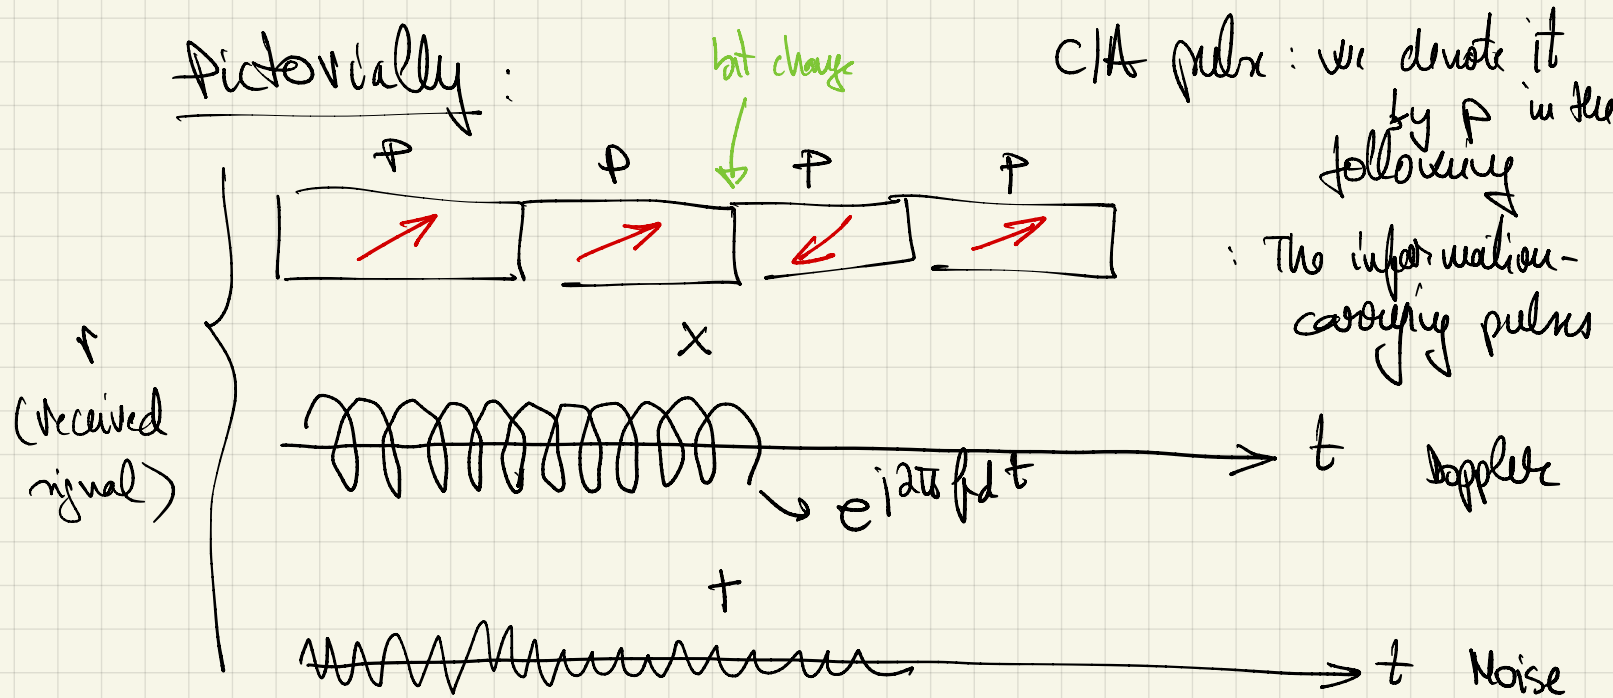 Pictorially :
bit change
C/A pulse : we denote it
by p in the
following
P P P P
: The information-
carrying pulses
x
r
(received
signal)
t Doppler
e^{j2π f_d t}
+
t Noise